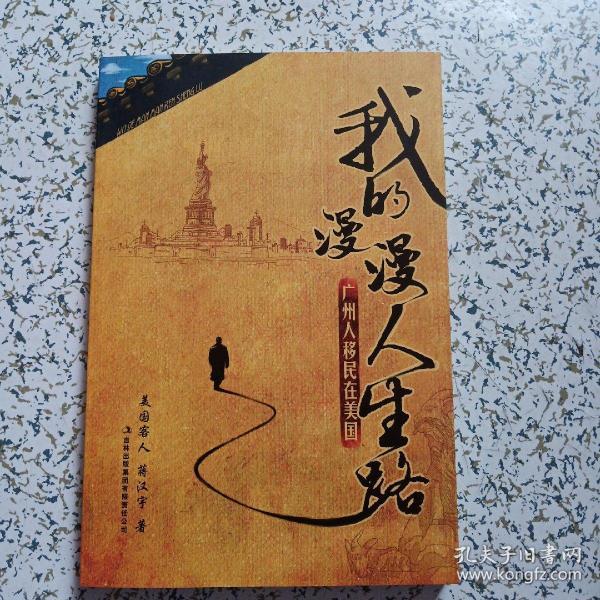 WO DE MAN MAN REN SHENG LU
我的漫漫人生路
广州人移民在美国
美国客人 蒋汉宇 著
吉林出版集团有限责任公司
孔夫子旧书网
www.kongfz.com